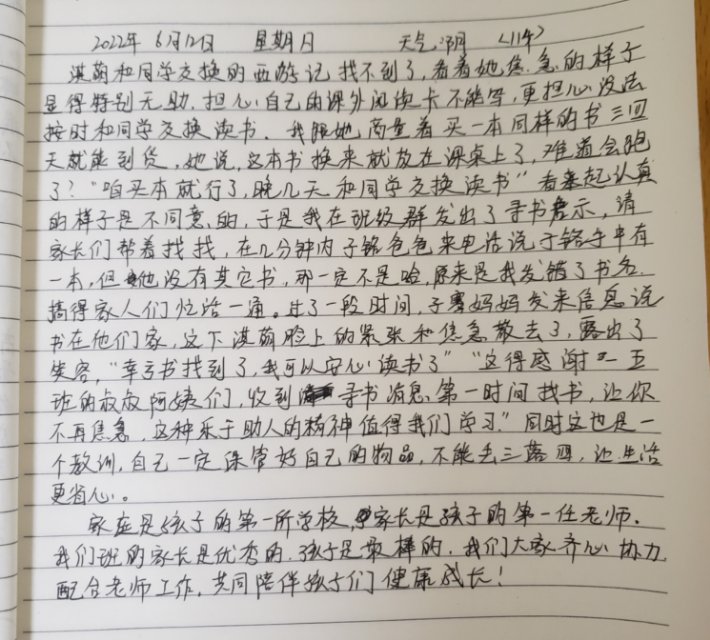 2022年 6月12日 星期日 天气:阴 <114>
淇萌和同学交换的西游记找不到了,看着她焦急的样子
显得特别无助,担心自己的课外阅读卡不能写,更担心没法
按时和同学交换读书。我跟她商量着买一本同样的书三四
天就能到货,她说,这本书换来就放在课桌上了,难道会跑
了?"咱买本就行了,晚几天和同学交换读书"看起认真
的样子是不同意的,于是我在班级群发出了寻书启示,请
家长们帮着找找,在几分钟内子铭爸爸来电话说子铭手中有
一本,但他没有其它书,那一定不是哈,原来是我发错了书名,
搞得家人们忙活一通。过了一段时间,子骞妈妈发来信息说
书在他们家,这下淇萌脸上的紧张和焦急散去了,露出了
笑容,"幸亏书找到了,我可以安心读书了""这得感谢二五
班的叔叔阿姨们,收到寻书消息第一时间找书,让你
不再焦急,这种乐于助人的精神值得我们学习。"同时这也是一
个教训,自己一定保管好自己的物品,不能丢三落四,让生活
更省心。
家庭是孩子的第一所学校,家长是孩子的第一任老师。
我们班的家长是优秀的,孩子是最棒的,我们大家齐心协力
配合老师工作,共同陪伴孩子们健康成长!